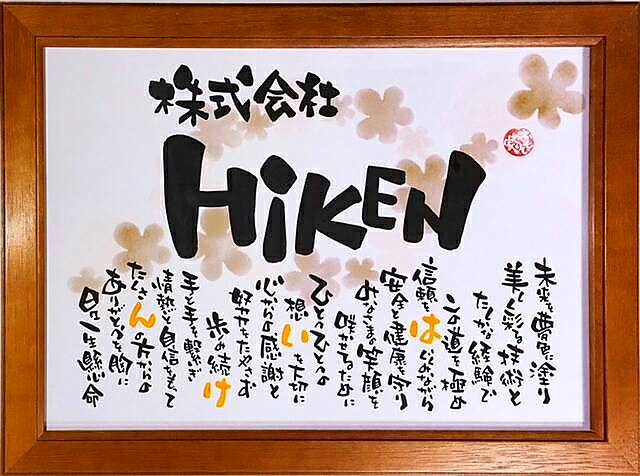 株式会社
HiKEN
未来を夢色に塗り
美しく彩る技術と
たしかな経験で
この道を極め
信頼をは ながら
安全と健康を守り
みなさまの笑顔を
咲かせるために
ひとつひとつの
想いを大切に
心からの感謝と
歩み続け
手と手を繋ぎ
情熱と自信をもって
たくさんの方からの
ありがとうを胸に
日々一生懸命